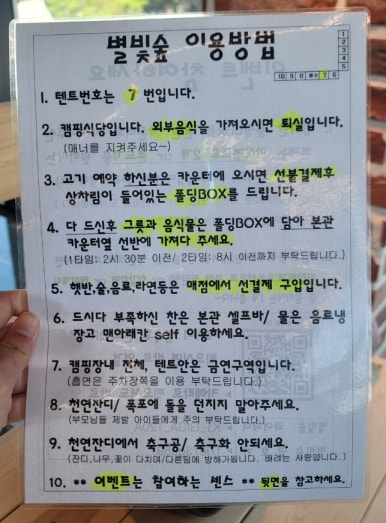 별빛숲 이용방법
1
2
3
4
5
10 9 8 7 6
1. 텐트번호는 7 번입니다.
2. 캠핑식당입니다. 외부음식을 가져오시면 퇴실입니다.
(매너를 지켜주세요~)
3. 고기 예약 하신분은 카운터에 오시면 선불결제후
상차림이 들어있는 폴딩BOX를 드립니다.
4. 다 드신후 그릇과 음식물은 폴딩BOX에 담아 본관
카운터옆 선반에 가져다 주세요.
(1타임: 2시 30분 이전/ 2타임: 8시 이전까지 부탁드립니다.)
5. 햇반,술,음료,라면등은 매점에서 선결제 구입입니다.
6. 드시다 부족하신 찬은 본관 셀프바/ 물은 음료냉
장고 맨아래칸 self 이용하세요.
7. 캠핑장내 전체, 텐트안은 금연구역입니다.
(흡연은 주차장쪽을 이용 부탁드립니다.)
8. 천연잔디/ 폭포에 돌을 던지지 말아주세요.
(부모님들 제발 아이들에게 주의 부탁드립니다.)
9. 천연잔디에서 축구공/ 축구화 안되세요.
(잔디,나무,꽃이 다치며/다른팀에 방해가됩니다. 배려는 사랑입니다.)
10. ** 이벤트는 참여하는 센스 ** 뒷면을 참고하세요.